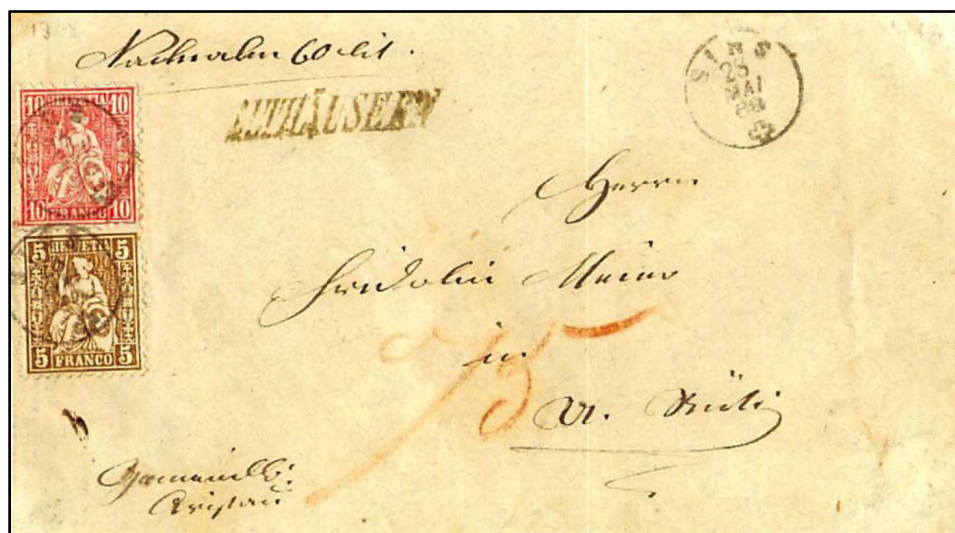 Nachnahm 60 Cts.
10 HELVETIA 10
10 FRANCO 10
5 HELVETIA 5
5 FRANCO 5
ALTHÄUSERN
SINS
25
MAI
68
Herrn
Fridolin Meier
in
Rüti
75
Aristau